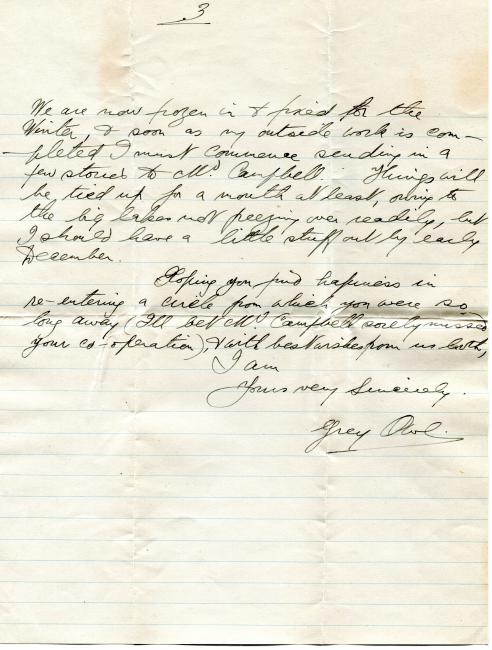 3
We are now frozen in & fixed for the
Winter, & soon as my outside work is com-
-pleted I must commence sending in a
few stories to Mr Campbell. Things will
be tied up for a month at least, owing to
the big lakes not freezing over readily, but
I should have a little stuff out by early
December.
Hoping you find happiness in
re-entering a circle from which you were so
long away (I'll bet Mr. Campbell sorely missed
your co-operation), & with best wishes from us both,
I am
Yours very Sincerely.
Grey Owl.